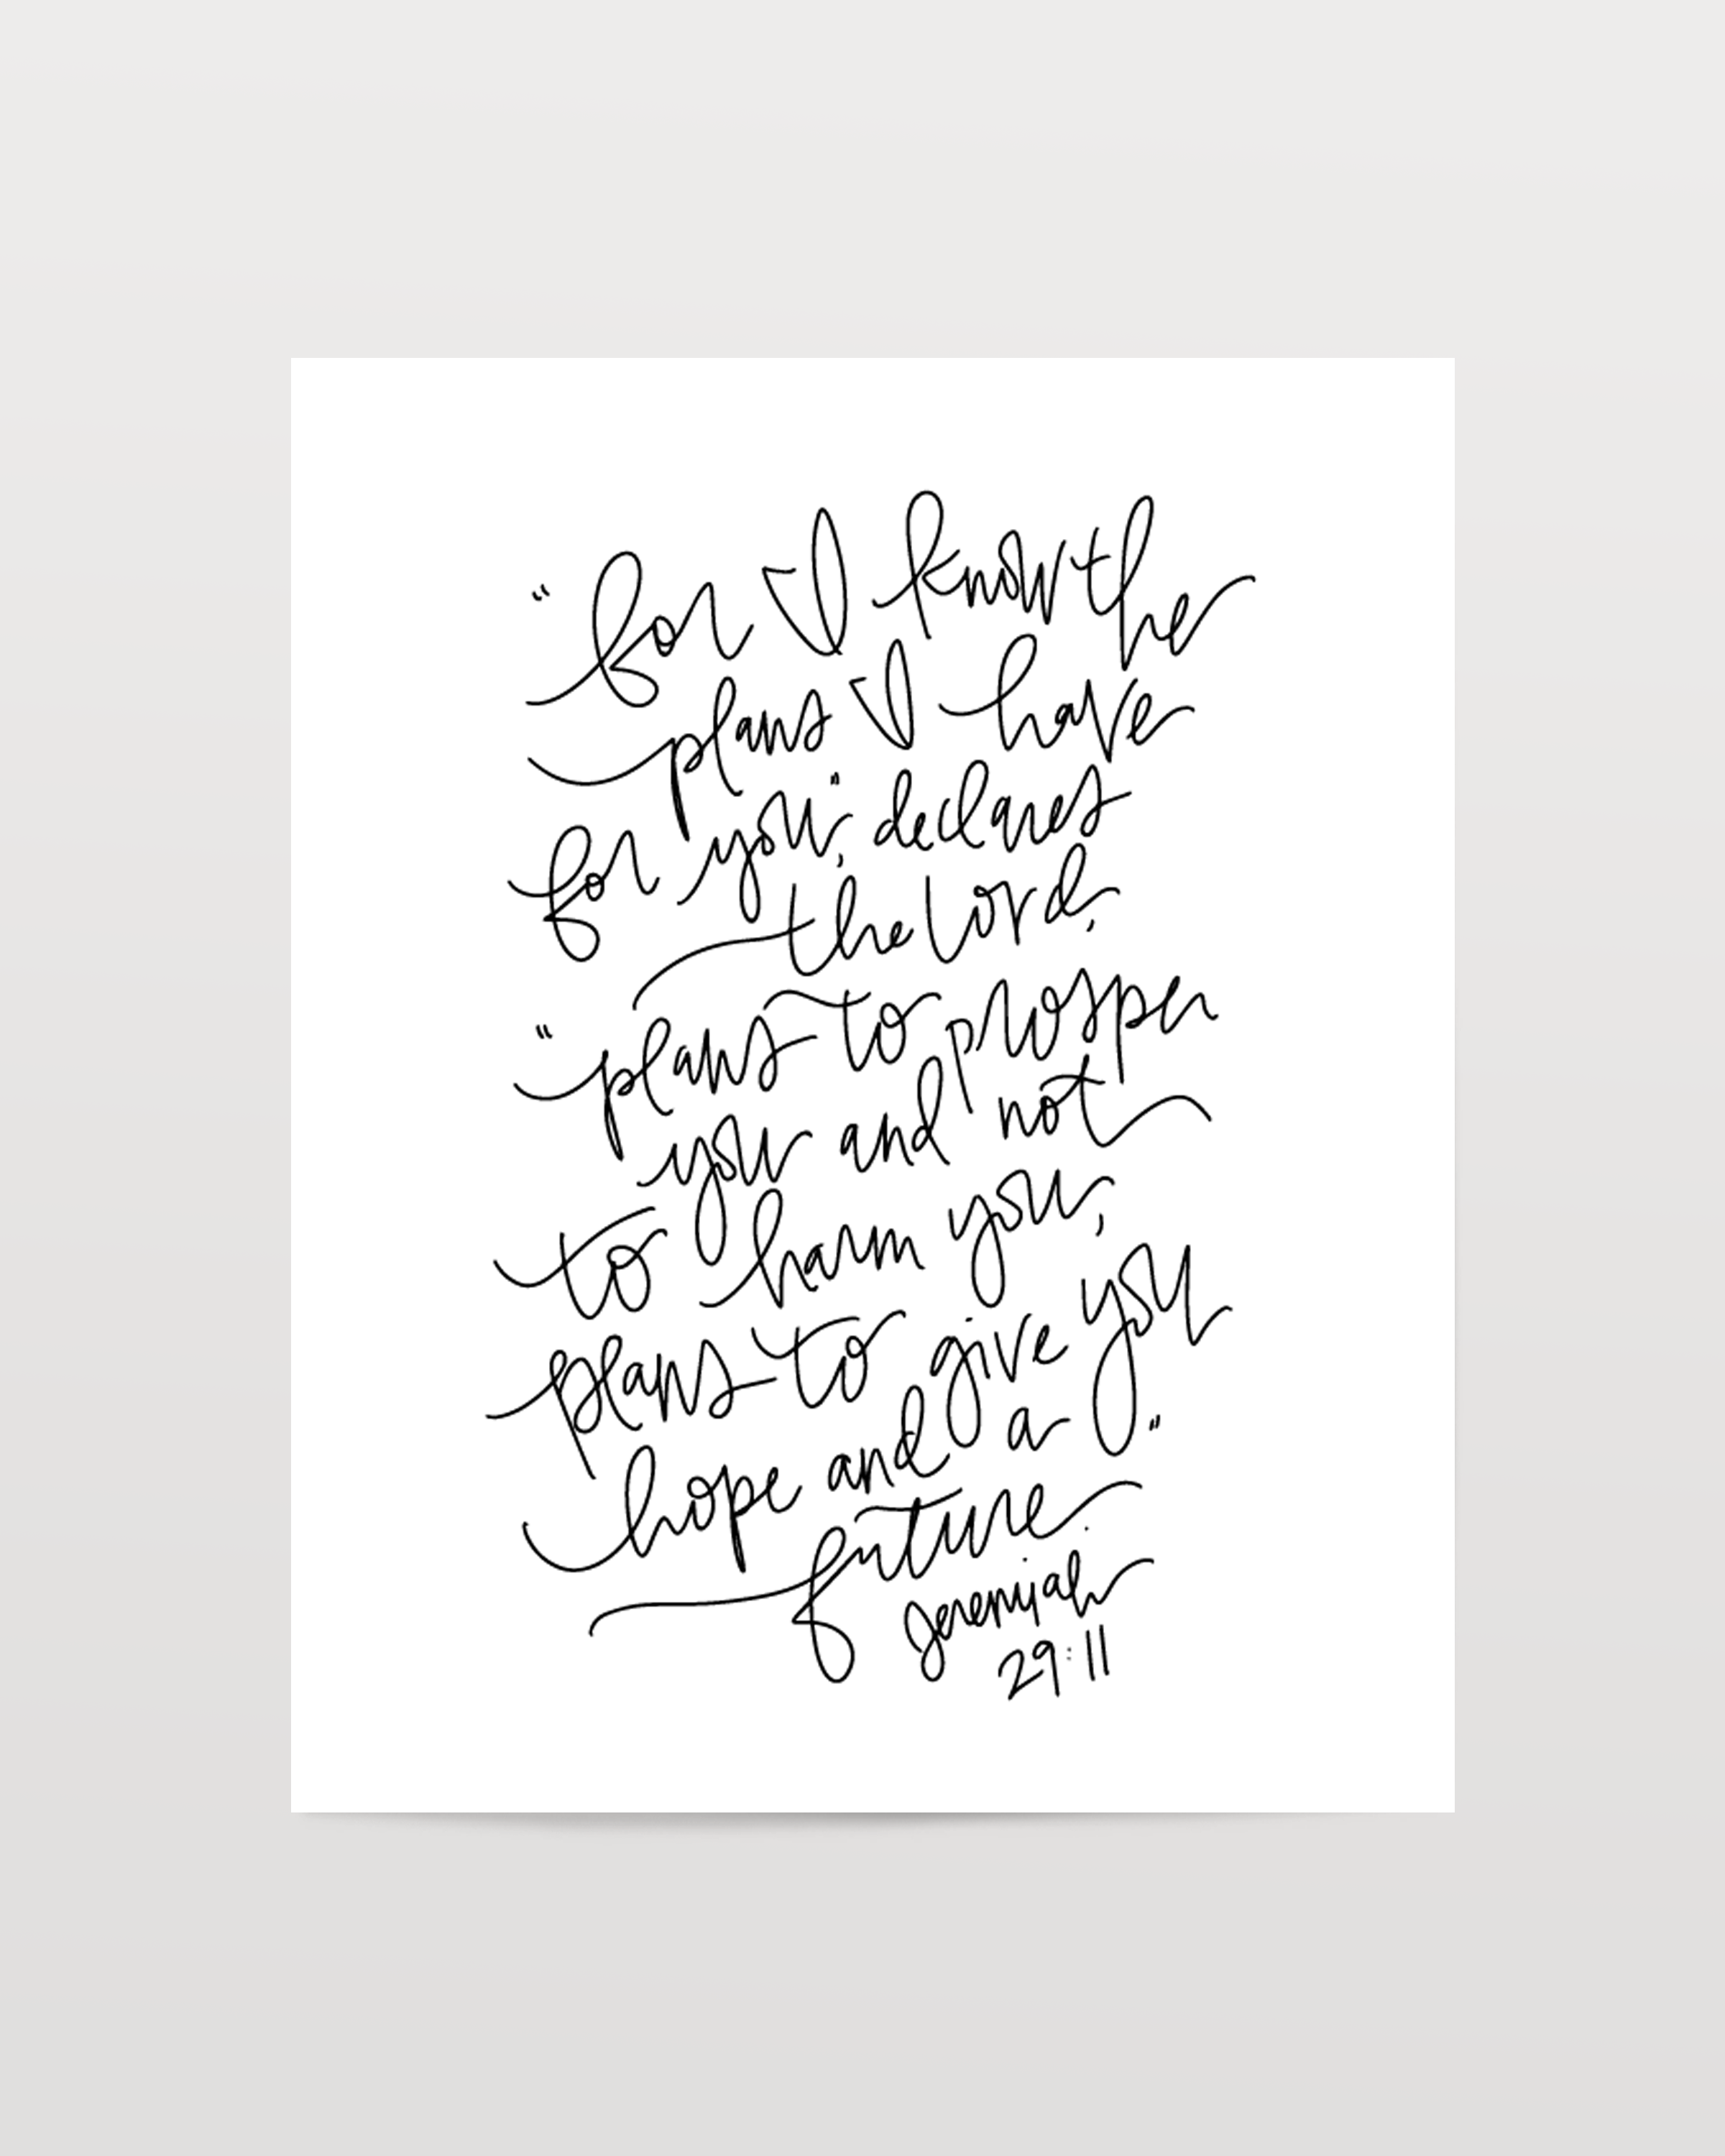 "for I know the
plans I have
for you", declares
the Lord,
"plans to prosper
you and not
to harm you,
plans to give you
hope and a
future."
Jeremiah
29:11